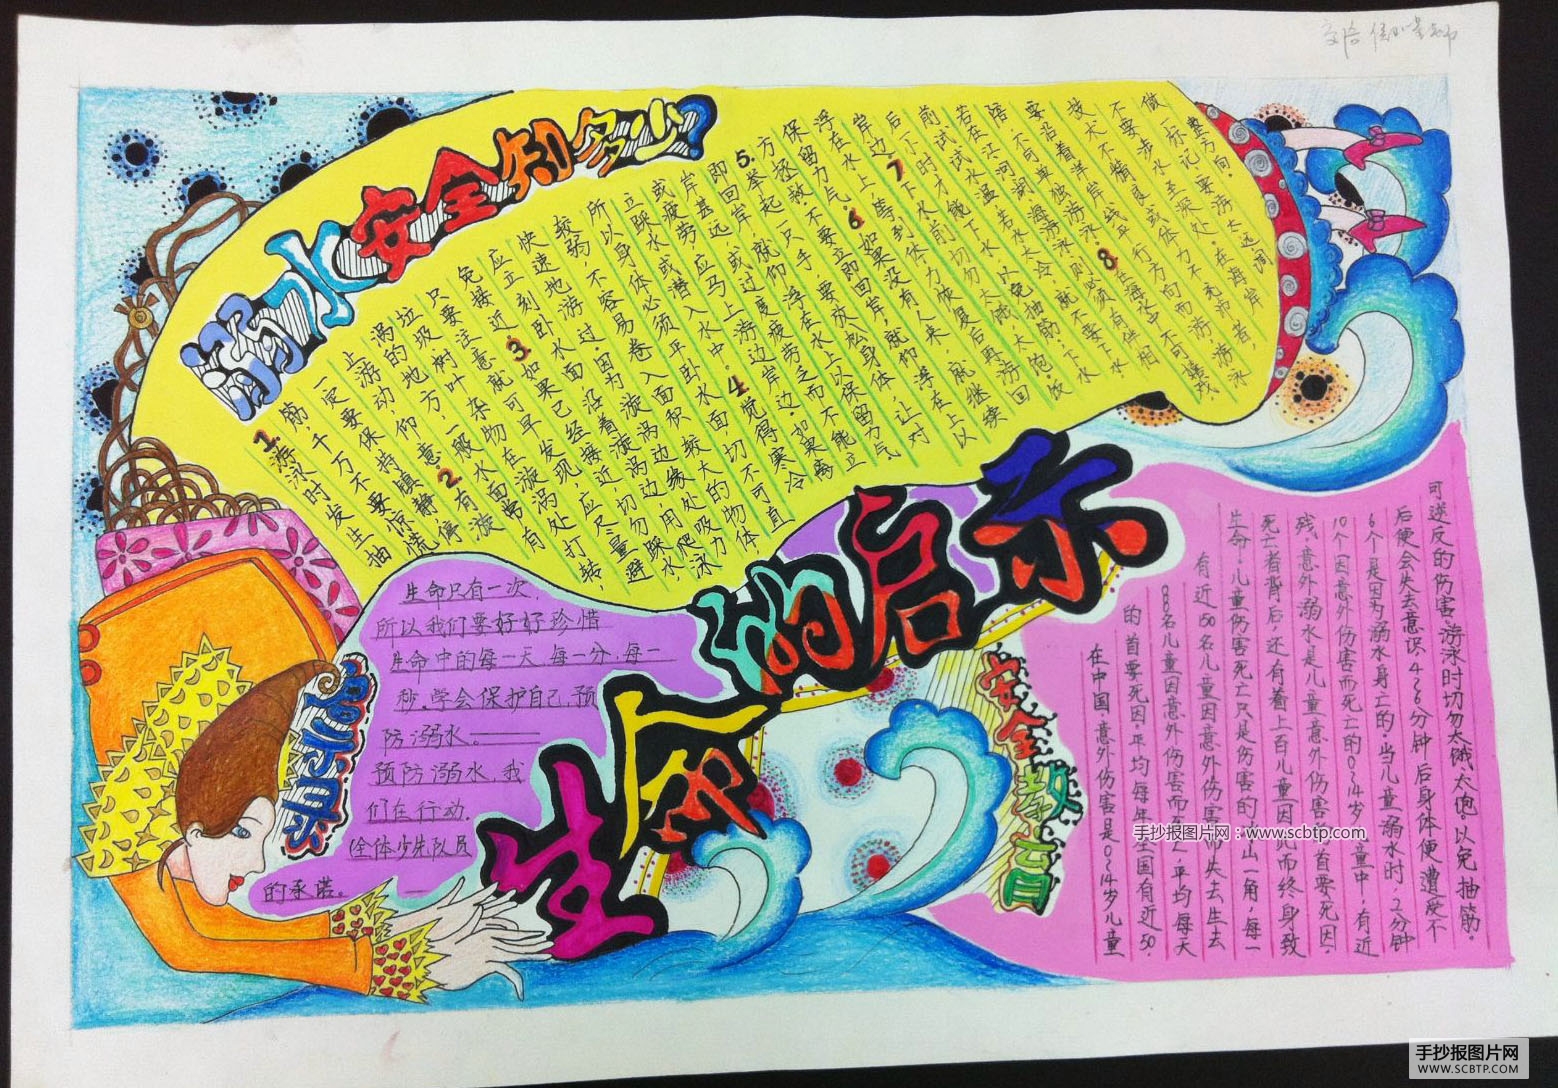 溺水安全知多少?
1.游泳时发生抽
筋,千万不要惊慌
一定要保持镇静,停
上游动,仰意 2.有漩
涡的地方一般水面常有
垃圾,树叶杂物在漩涡处打转,
只要注意就可早发现,应尽量避
免接近 3.如果已经接近,切勿踩水,
应立刻卧水面,沿着漩涡边用爬泳
快速地游过,因为漩涡边缘处吸力
较弱,不容易卷入面积较大的物体
所以身体必须平卧水面,切不可直
立踩水或潜入水中。4.觉得寒冷
或疲劳,应马上游边岸边.如果离
岸甚远,或过度疲劳之而不能立
即回岸,就仰浮在水上以保留力气
5.举起一只手,要放松身体,让对
方拯救,不要立即回岸,就仰浮在上以
保留力气 6.如果没有人来,就继续
浮在水上,等到体力恢复后再游回
岸边. 7.下水前切勿太饿,太饱.饭
后一小时才能下水,以免抽筋.下水
前试试水温,若水太冷,就不要下水
若在江河湖海游泳则须有伴相
陪,不可单独游泳 8.在海水中不可
要沿着海岸线平行方向而游
技术不精良或体力不充沛者,
不要涉水至深处.在海岸
做一标记,要游太远调
整方向。
生命的启示
启示录
生命只有一次,
所以我们要好好珍惜
生命中的每一天,每一分,每一
秒,学会保护自己,预
防溺水。——
预防溺水,我
们在行动.
全体少先队员
的承诺。——
安全教育
在中国,意外伤害是0~14岁儿童
的首要死因.平均每年全国有近50.
000名儿童因意外伤害而死亡,平均每天
有近150名儿童因意外伤害而失去生去
生命.儿童伤害死亡只是伤害的冰山一角,每一
死亡者背后,还有着上百儿童因此而终身致
残.意外溺水是儿童意外伤害首要死因.
10个因意外伤害而死亡的0~14岁儿童中,有近
6个是因为溺水身亡的.当儿童溺水时,2分钟
后便会失去意识4~6分钟后身体便遭受不
可逆反的伤害.游泳时切勿太饿太饱.以免抽筋.
手抄报图片网：www.scbtp.com
手抄报图片网
WWW.SCBTP.COM